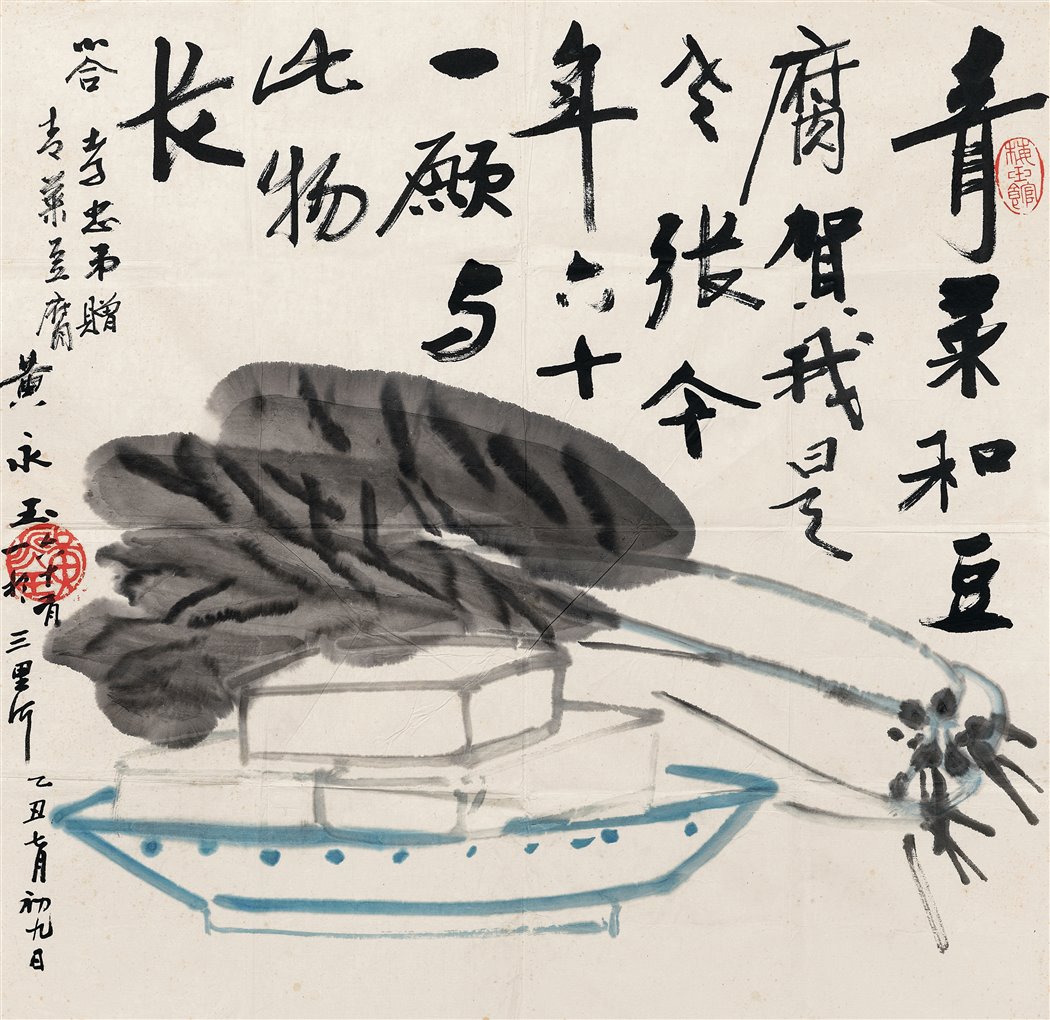 青菜和豆
腐賀我是
老張今
年六十
一願与
此物
长
答
孝忠弟贈
青菜豆腐
黄永玉六十有
一於三里河乙丑七月初九日